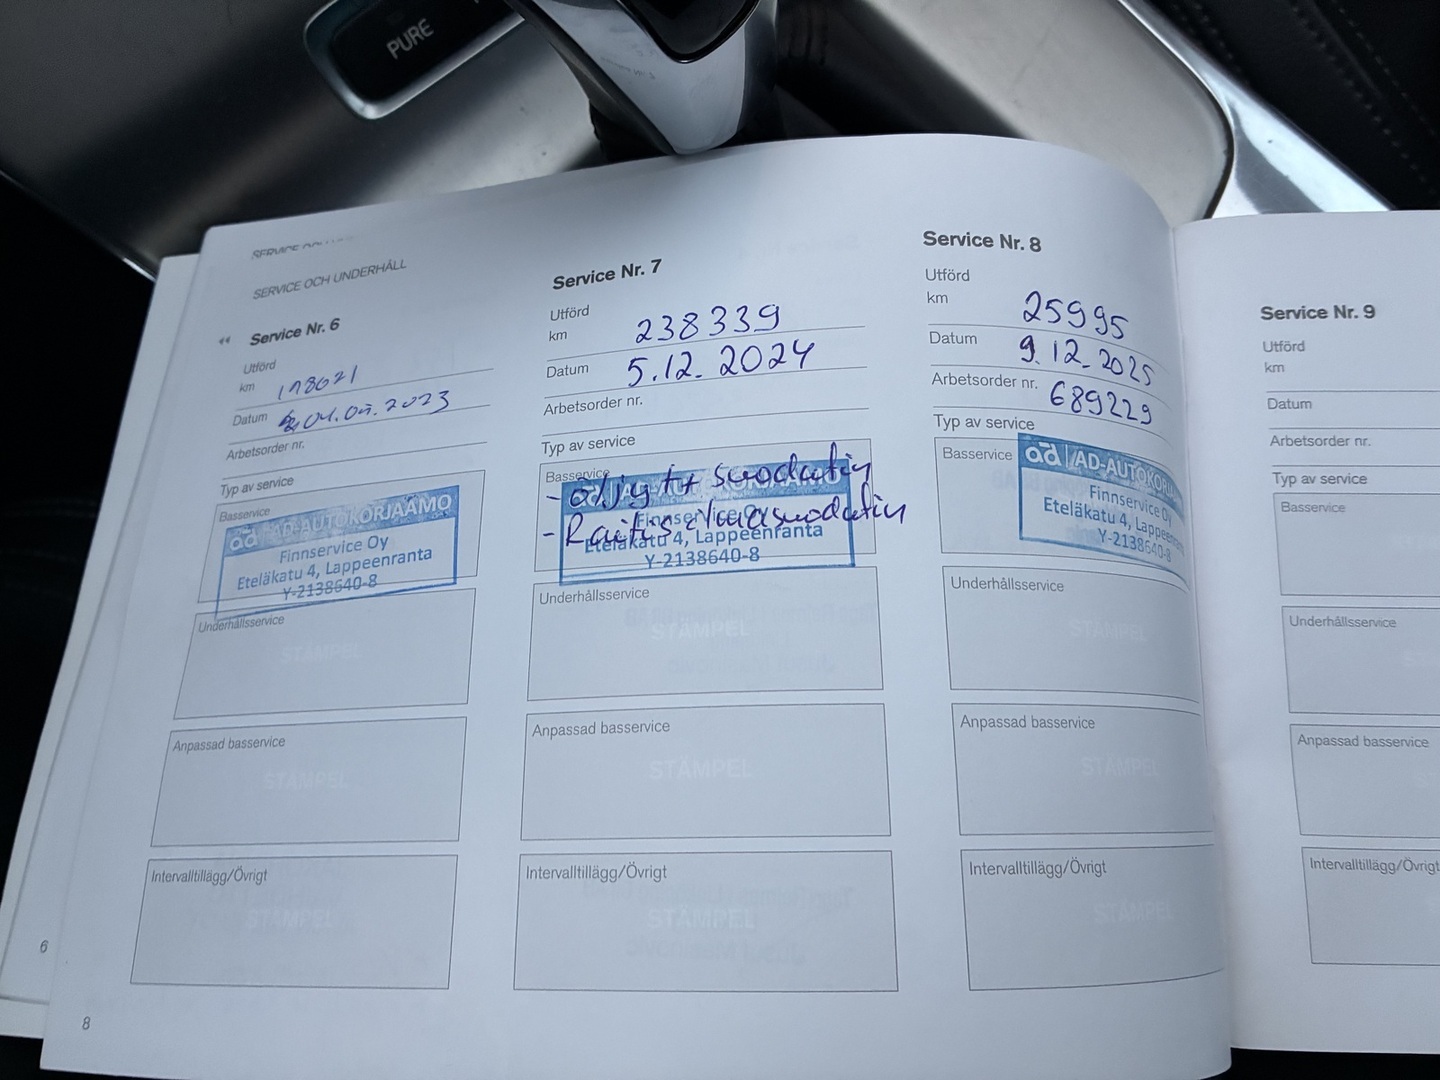 PURE
SERVICE OCH UNDERHÅLL
Service Nr. 6
Utförd
km 178621
Datum
2023
Arbetsorder nr.
Typ av service
Basservice
ad AD-AUTOKORJAAMO
Finnservice Oy
Eteläkatu 4, Lappeenranta
Y-2138640-8
Underhållsservice
STÄMPEL
Anpassad basservice
STÄMPEL
Intervalltillägg/Övrigt
STÄMPEL
6
8
Service Nr. 7
Utförd
km 238339
Datum 5.12.2024
Arbetsorder nr.
Typ av service
Basservice
- öljyt + suodatin
- Raitisilmasuodatin
Finnservice Oy
Eteläkatu 4, Lappeenranta
Y-2138640-8
Underhållsservice
STÄMPEL
Anpassad basservice
STÄMPEL
Intervalltillägg/Övrigt
STÄMPEL
Service Nr. 8
Utförd
km 25995
Datum 9.12.2025
Arbetsorder nr. 689229
Typ av service
Basservice
ad AD-AUTOKORJA
Finnservice Oy
Eteläkatu 4, Lappeenranta
Y-2138640-8
Underhållsservice
STÄMPEL
Anpassad basservice
STÄMPEL
Intervalltillägg/Övrigt
STÄMPEL
Service Nr. 9
Utförd
km
Datum
Arbetsorder nr.
Typ av service
Basservice
Underhållsservice
Anpassad basservice
Intervalltillägg/Övrigt